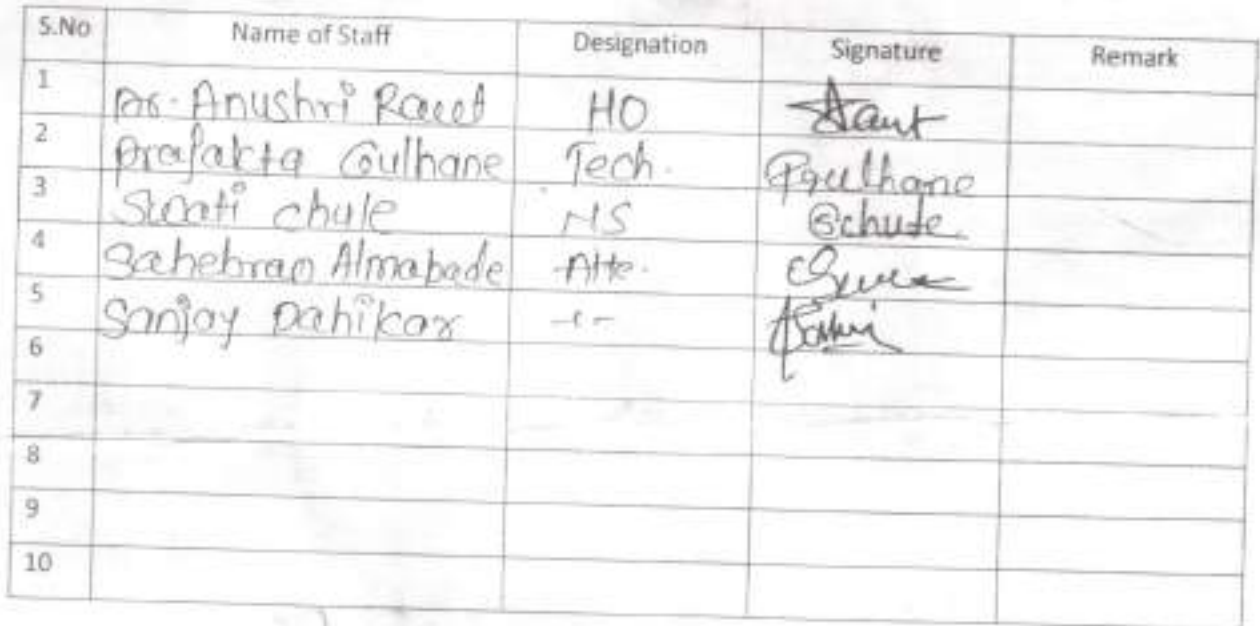 S.No Name of Staff Designation Signature Remark
1 Dr. Anushri Raut HO Raut
2 Prajakta Gulhane Tech. PGulhane
3 Swati chule NS Schule
4 Sahebrao Almabade Atte.
5 Sanjay Dahikar -〃-
6
7
8
9
10